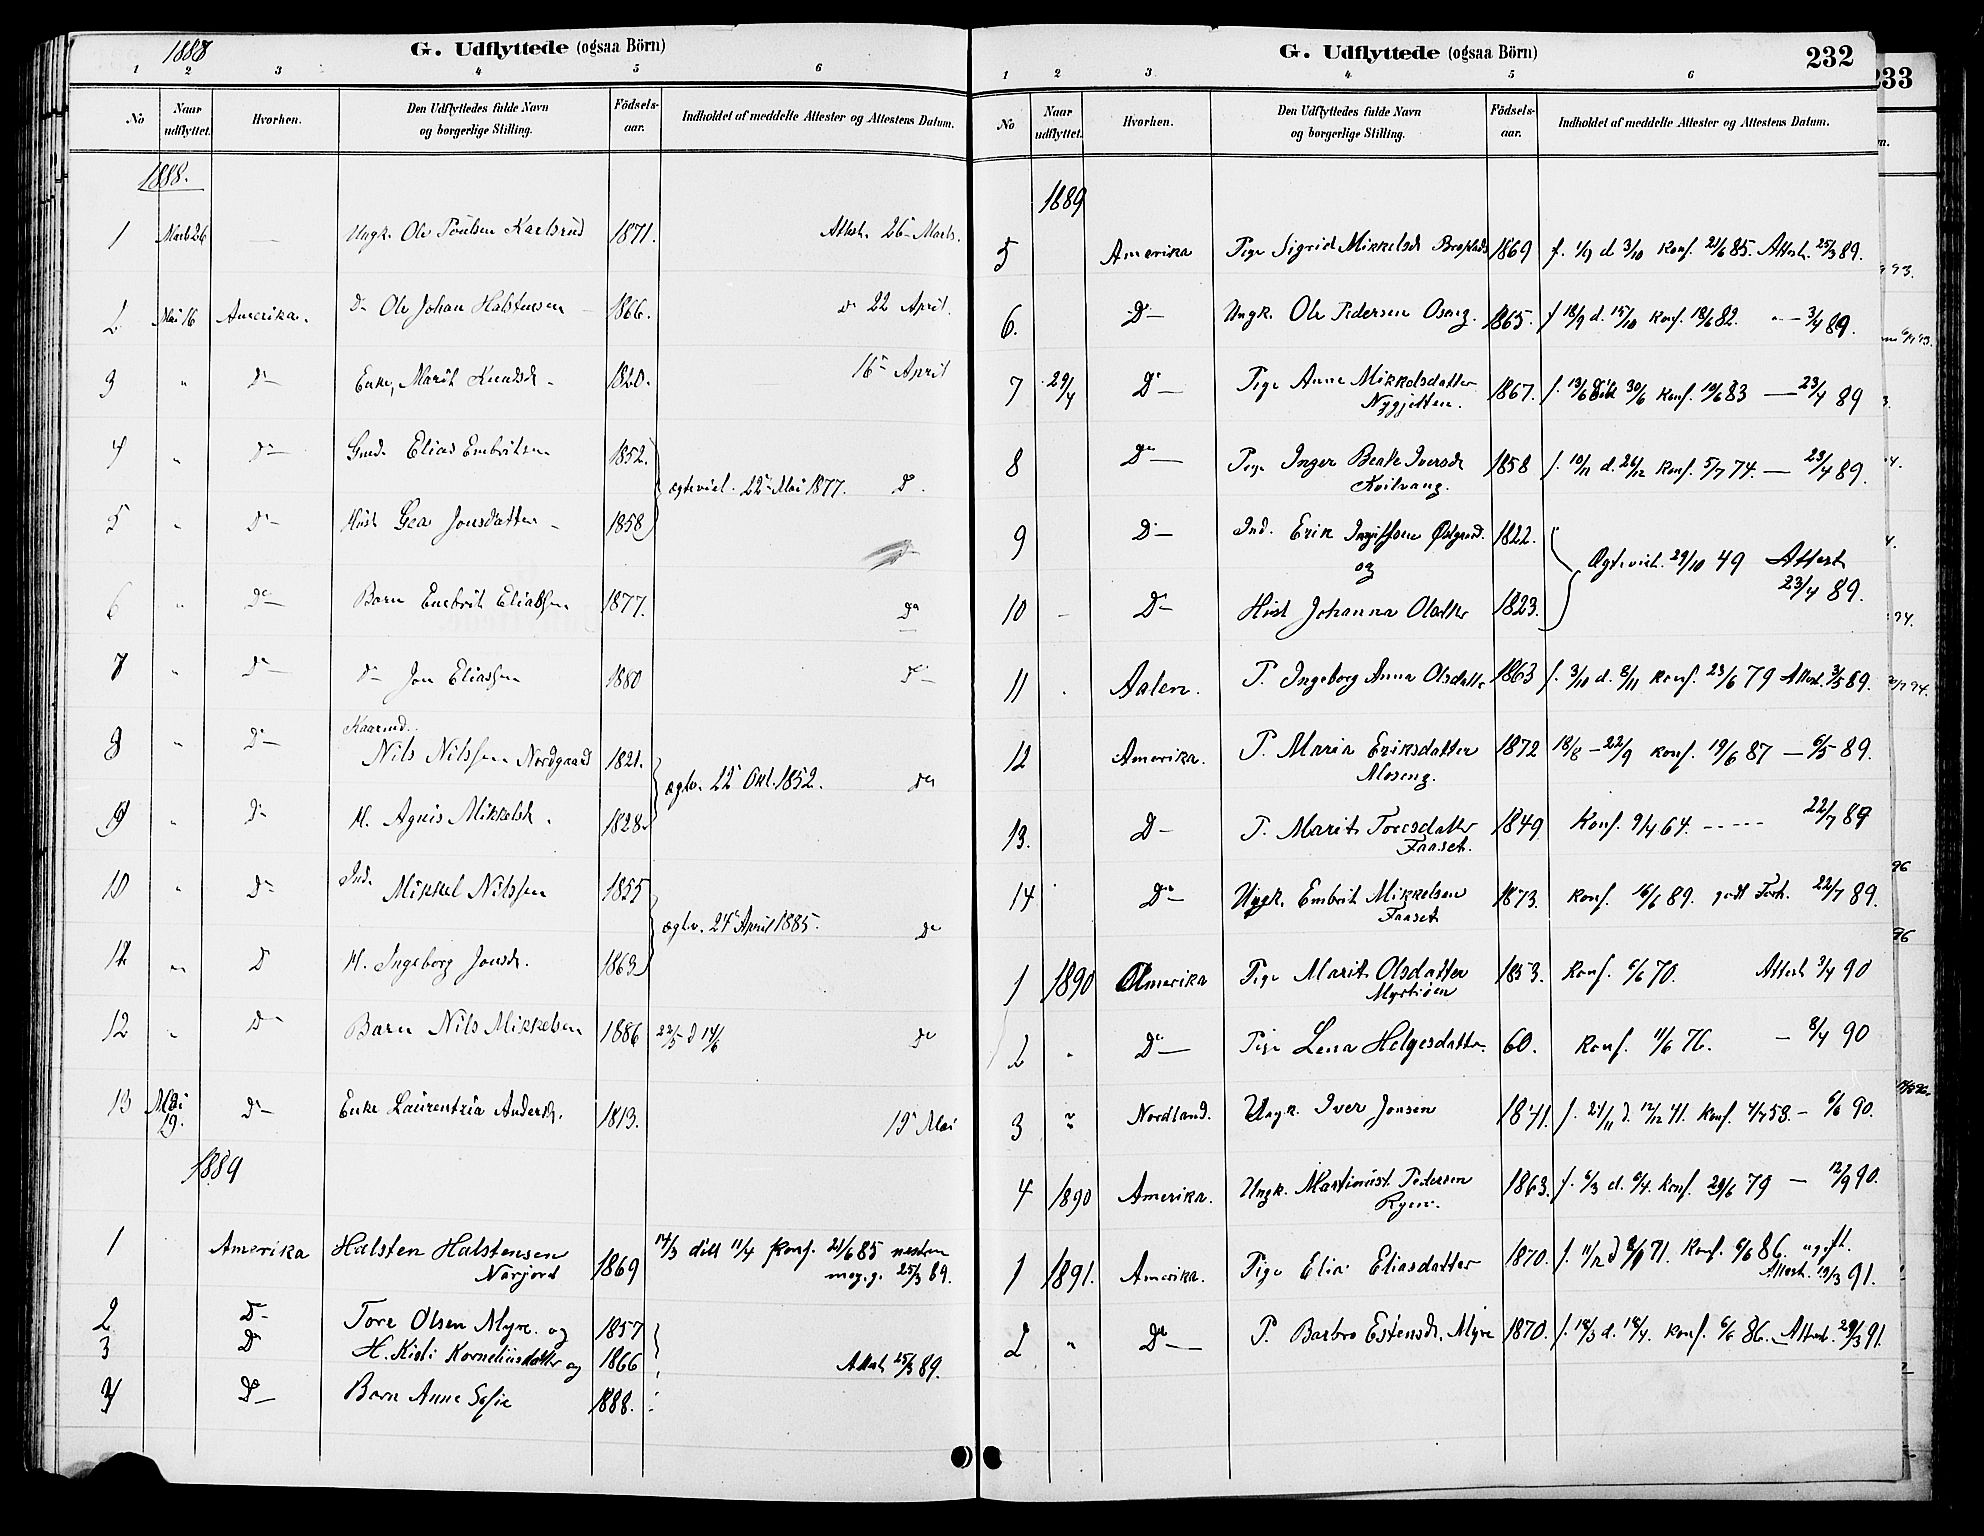 1888
G. Udflyttede (ogsaa Börn)
1 2 3 4 5 6
No Naar udflyttet. Hvorhen. Den Udflyttedes fulde Navn og borgerlige Stilling. Födsels-aar. Indholdet af meddelte Attester og Attestens Datum.
1888.
1 Marts 26 — Ungk. Ole Poulsen Karlsrud 1871. Attest. 26 Marts.
2 Mai 16 Amerika. Do Ole Johan Halstensen 1866. Do 22 April.
3 " Do Enke, Marit Knudsd. 1820. 16 April
4 " Do Gmd. Elias Embritsen 1852. } ægteviet. 22 Mai 1877. D.
5 " Do Hust Gea Jonsdatter 1858
6 " Do Barn Embrit Eliassen 1877. Do
7 " Do Do Jon Eliassen 1880 Do
8 " Do Kaarmd. Nils Nilssen Nordgaard 1821. } ægtv. 22 Okt. 1852. Do
9 " Do H. Agnis Mikkelsd. 1828.
10 " Do Ind. Mikkel Nilssen 1855 } ægtv. 24 April 1885. Do
11 " D H. Ingeborg Jonsd. 1863
12 " D Barn Nils Mikkelsen 1886 22/5 d 14/6 Do
13 Mai 19. Do Enke Laurentzia Andersd. 1813. 19 Mai
1889
1 Amerika Halsten Halstensen 1869 14/3 døbt 11/4 Konf. 21/6 85 nesten
Narjord meg. g. 25/3 89.
2 D Tore Olsen Myre. og 1857
3 D H. Kisti Korneliusdatter og 1866 Attest 25/3 89.
4 D Barn Anne Sofie 1888.
G. Udflyttede (ogsaa Börn) 232
1 2 3 4 5 6
No Naar udflyttet. Hvorhen. Den Udflyttedes fulde Navn og borgerlige Stilling. Födsels-aar. Indholdet af meddelte Attester og Attestens Datum.
1889
5 Amerika Pige Sigrid Mikkelsd 1869 f. 1/9 d 3/10 Konf. 21/6 85. Attest. 25/3 89.
6. D— Ungk. Ole Pedersen Oseng. 1865. f 18/9 d. 15/10 Konf. 18/6 82. " — 3/4 89.
7 29/4 D— Pige Anne Mikkelsdatter 1867. f. 13/6 30/6 Konf. 10/6 83 — 23/4 89
Nygjelten.
8 Do— Pige Inger Beate Iversd 1858 f. 10/11 d. 26/12 Konf. 5/7 74. — 23/4 89.
Kvilvang.
9 D— Ind. Erik 1822. } Ægteviet. 29/10 49 Attest
og 23/4 89.
10 — D— Hust Johanna Olsdtter 1823.
11 . Aalen. P. Ingeborg Anna Olsdatter 1863 f. 3/10 d. 8/11 Konf. 23/6 79 Attest. 3/5 89.
12 Amerika. P. Maria Eriksdatter 1872 18/8 — 22/9 Konf. 19/6 87 — 6/5 89.
Moseng.
13. D— P. Marit Toresdatter 1849. Konf. 9/4 64. ----- 22/7 89
Faaset.
14 Do— Ungk. Embrit Mikkelsen 1873. Konf. 16/6 89. godt Forh. 22/7 89.
Faaset
1 1890 Amerika Pige Marit Olsdatter 1853. Konf. 6/6 70. Attest 3/4 90
Myrtiøen
2 " Do— Pige Lena Helgesdatter. 60. Konf. 11/6 76. — 8/4 90
3 " Nordland. Ungk. Iver Jonsen 1841. f. 21/11 d. 12/12 41. Konf. 4/7 58. — 6/6 90.
4 1890 Amerika. Ungk. Martinius Pedersen 1863. f. 6/3 d. 6/4. Konf. 29/6 79 — 12/9 90.
Ryen.
1 1891. Amerika. Pige Elie Eliasdatter 1870. f. 11/12 d 71. Konf. 6/6 86. ugift.
Attest. 19/3 91.
2 " Do— P. Barbro Estensd. Myre 1870. f. 18/3 d. 18/4. Konf. 6/6 86. — Attest. 29/3 91.
233